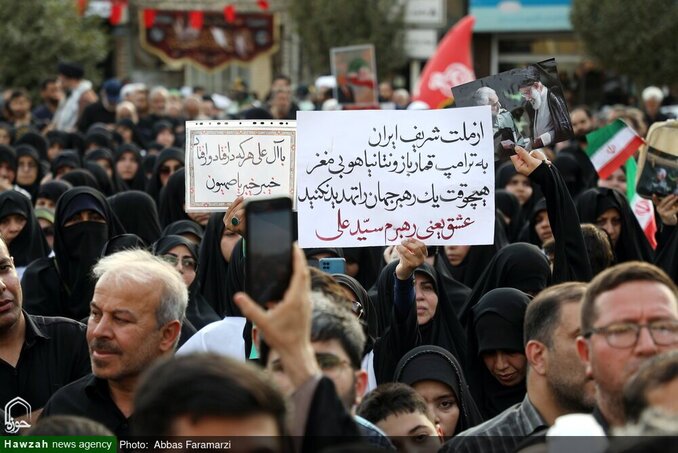 با آل علی هر که در افتاد ور افتاد
خیبر خیبر یا صهیون
از ملت شریف ایران
به ترامپ قمار باز و نتانیاهو بی مغز
هیچ وقت یک رهبر جهان را تهدید نکنید
عشق یعنی رهبرم سیّد علی
Hawzah news agency
Photo: Abbas Faramarzi